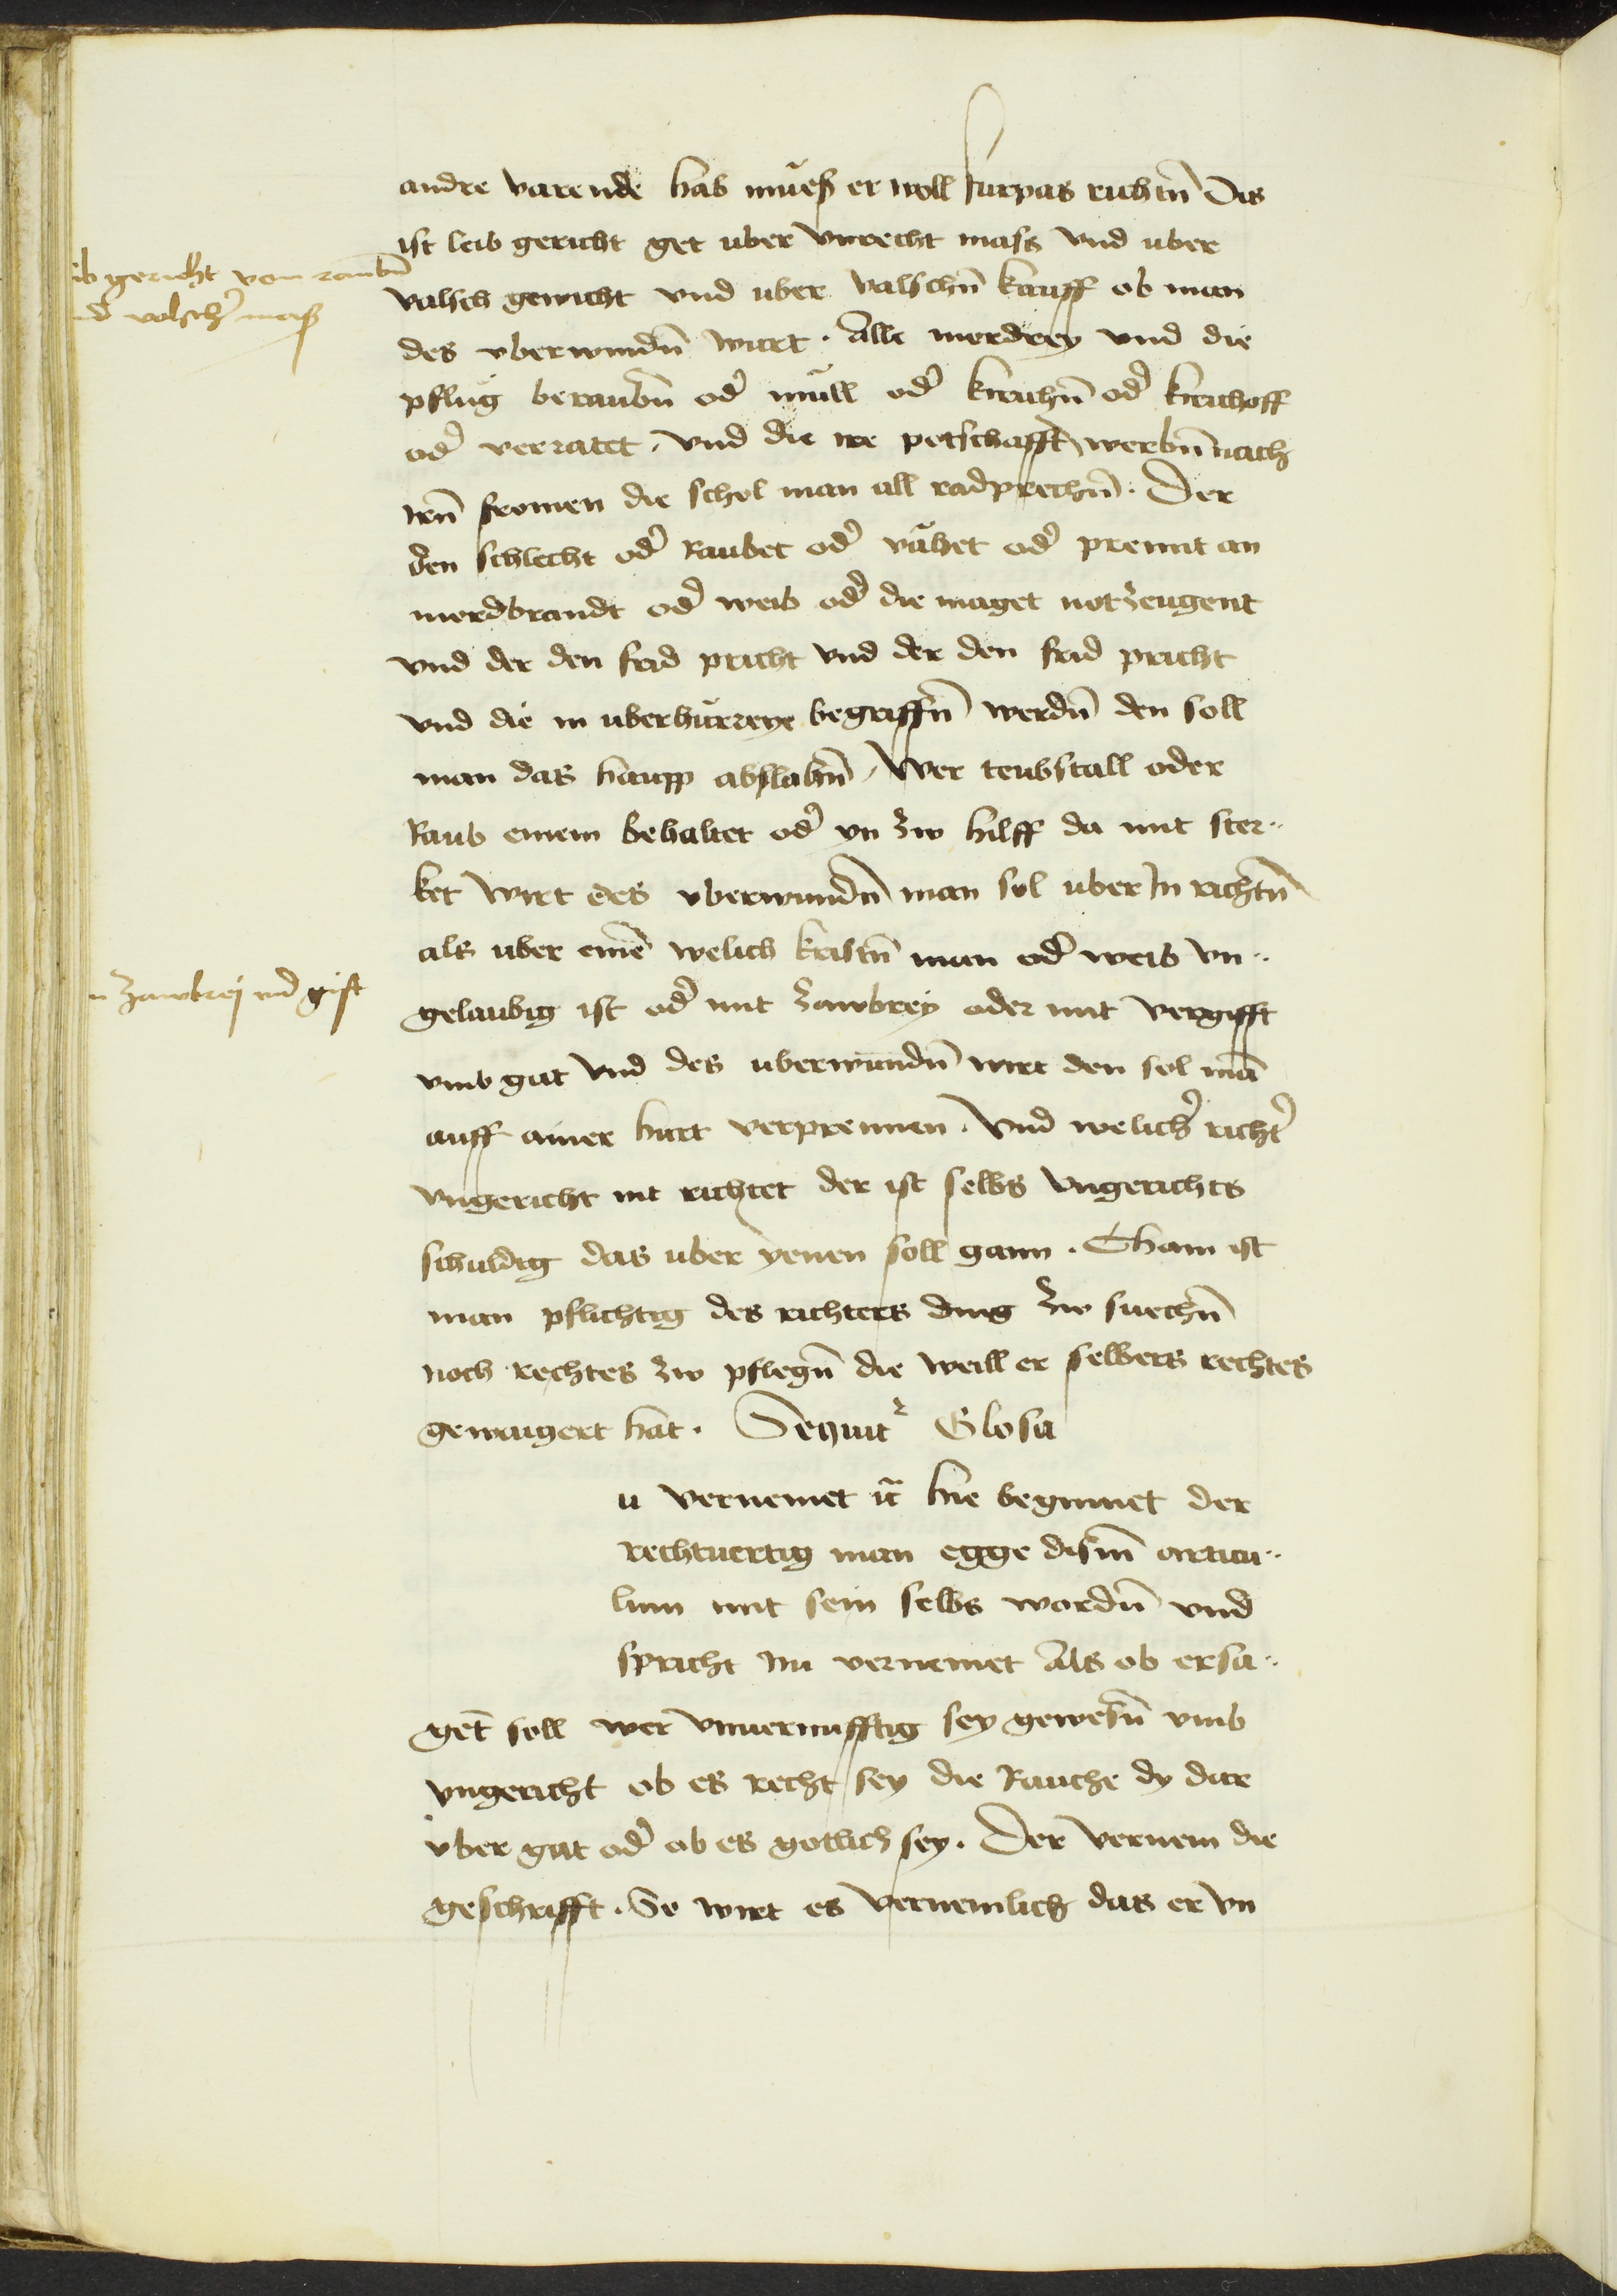 andre varende hab mueß er woll furpas richtn̄ Dis
ist leib gericht get uber vnrecht mass vnd uber
valsch gewicht vnd uber valschn̄ kauff ob man
des vberwindn̄ wurt. Alle merdrey vnd die
pflug beraubn̄ od̾ mull od̾ kirichn̄ od̾ kirichoff
od̾ verratet, vnd die ire petschafft werbn̄ nach
irn̄ fromen die schol man all radprechn̄. Der
den schlecht od̾ Raubet od̾ vahet od̾ prennt an
merdbrandt od̾ weib od̾ die maget notzeugent
vnd der den frid pricht vnd der den frid pricht
vnd die in uberhurreye begriffn̄ werdn̄ den soll
man das haupp abslahn̄, Wer teubstall oder
Raub einem behaltet od̾ yn zw hilff da mit ster..
ket wirt des vberwundn̄ man sol uber In richtn̄
als uber eine̅ welich kristn̄ man od̾ weib vn..
gelaubig ist od̾ mit zawbrey oder mit vergifft
vmb gat vnd des uberwundn̄ wirt den sol ma̅
auff ainer hurt verprennen. Vnd welich̾ richt̾
vngericht nit richtet der ist selbs vngerichts
schuldig das uber yenen soll gann. Cham ist
man pflichtig des richters ding zw suechn̄
noch rechtes zw pflegn̄ die weill er selbers rechtes
gewaigert hat. Sequit² Glosa
u vernemet u̅ hie beginnet der
rechtuertig man egge disin̄ articu..
lum mit sein selbs wordn̄ vnd
spricht Nu vernemet Als ob er sa..
get soll wer vnuernufftig sey gewesn̄ vmb
vngericht ob es recht sey die Rauche dy dar
vber gat od̾ ob es gotlich sey. Der vernem die
geschrifft. So wirt es vernemlich das er vn
ib gericht von raubn̄
nd valsch̾ maß
n zawbrej vnd gift